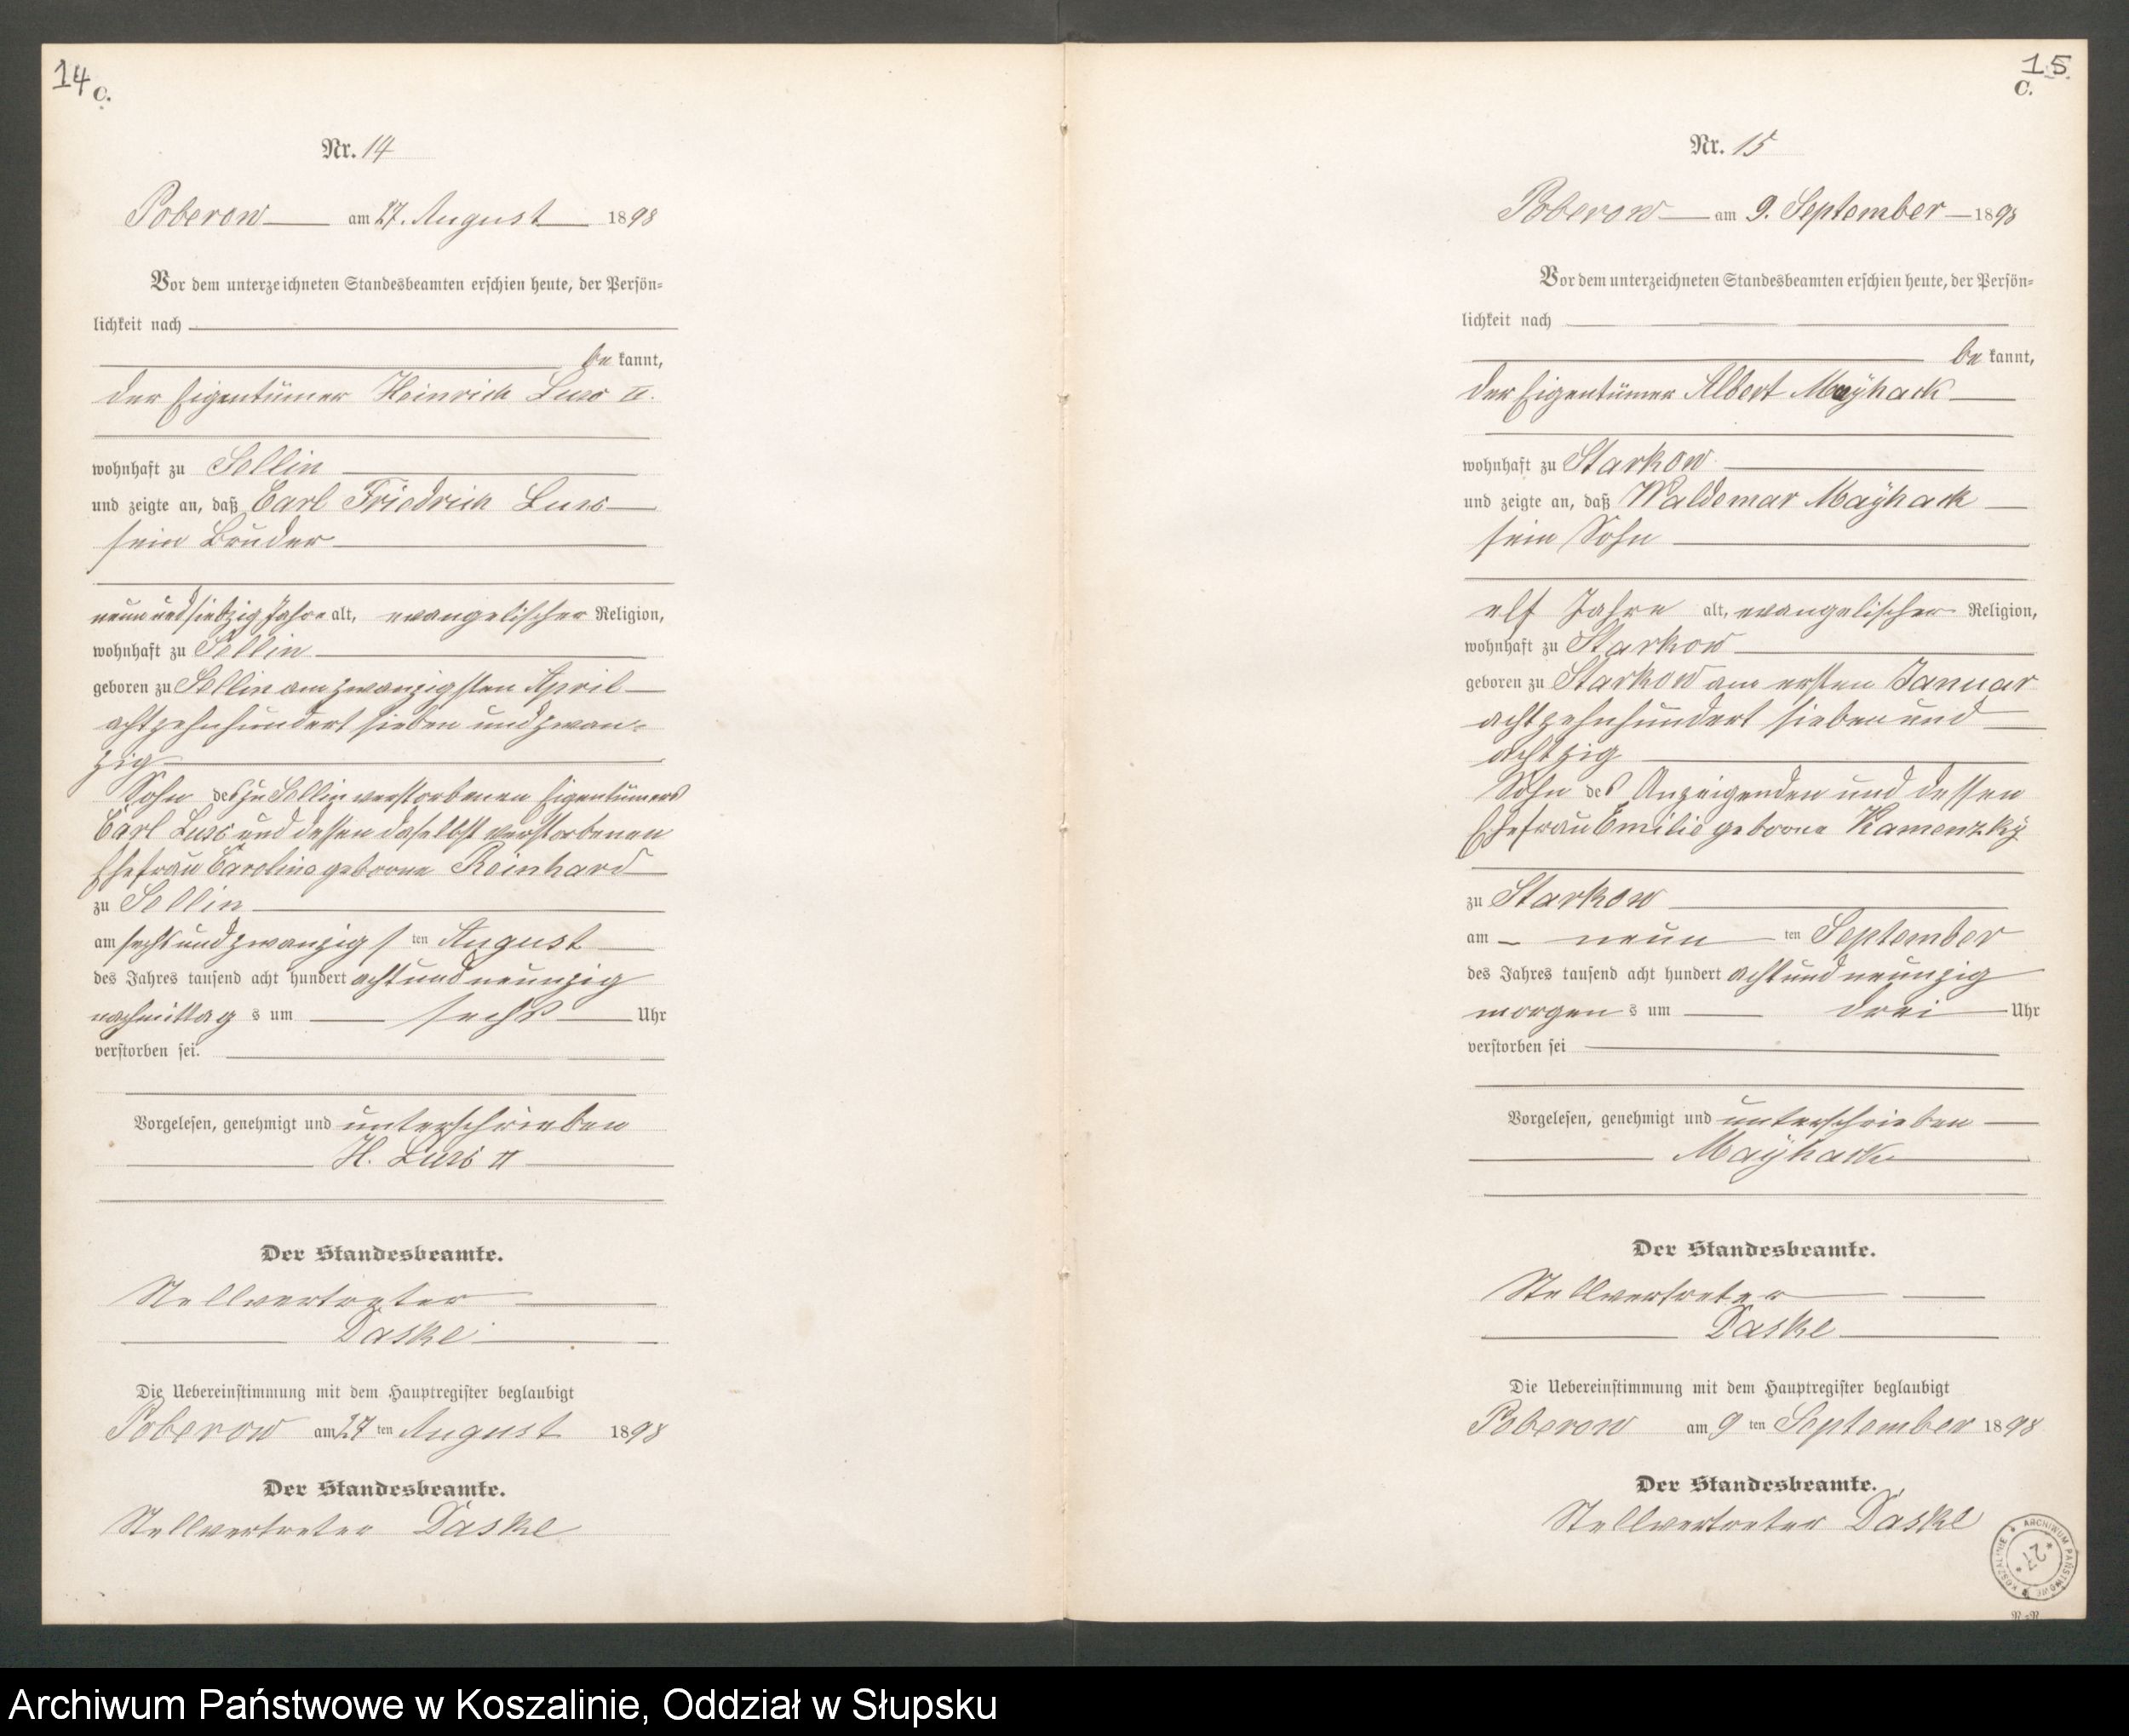 14
C.
Nr. 14
Poberow am 27. August 1898
Vor dem unterzeichneten Standesbeamten erschien heute, der Persön-
lichkeit nach
be kannt,
der Eigentümer Heinrich II.
wohnhaft zu Sellin
und zeigte an, daß Carl Friedrich
sein Bruder
neunundsiebzig Jahre alt, evangelischer Religion,
wohnhaft zu Sellin
geboren zu Sellin am zwanzigsten April
achtzehnhundert sieben und zwan-
zig
Sohn des zu Sellin verstorbenen Eigentümers
Carl und dessen daselbst verstorbenen
Ehefrau Caroline geborne Reinhard
zu Sellin
am sechsundzwanzigs ten August
des Jahres tausend acht hundert achtundneunzig
nachmittag s um sechs Uhr
verstorben sei.
Vorgelesen, genehmigt und unterschrieben
H. II
Der Standesbeamte.
Stellvertreter
Daske
Die Uebereinstimmung mit dem Hauptregister beglaubigt
Poberow am 27 ten August 1898
Der Standesbeamte.
Stellvertreter Daske
15
C.
Nr. 15
Poberow am 9. September 1898
Vor dem unterzeichneten Standesbeamten erschien heute, der Persön-
lichkeit nach
be kannt,
der Eigentümer Albert Maÿhack
wohnhaft zu Starkow
und zeigte an, daß Waldemar Maÿhack
sein Sohn
elf Jahre alt, evangelischer Religion,
wohnhaft zu Starkow
geboren zu Starkow am ersten Januar
achtzehnhundert sieben und
achtzig
Sohn des Anzeigenden und dessen
Ehefrau Emilie geborne Kamenzkÿ
zu Starkow
am neun ten September
des Jahres tausend acht hundert achtundneunzig
morgen s um drei Uhr
verstorben sei
Vorgelesen, genehmigt und unterschrieben
Maÿhack
Der Standesbeamte.
Stellvertreter
Daske
Die Uebereinstimmung mit dem Hauptregister beglaubigt
Poberow am 9 ten September 1898
Der Standesbeamte.
Stellvertreter Daske
ARCHIWUM PAŃSTWOWE W KOSZALINIE
* 27 *
Archiwum Państwowe w Koszalinie, Oddział w Słupsku